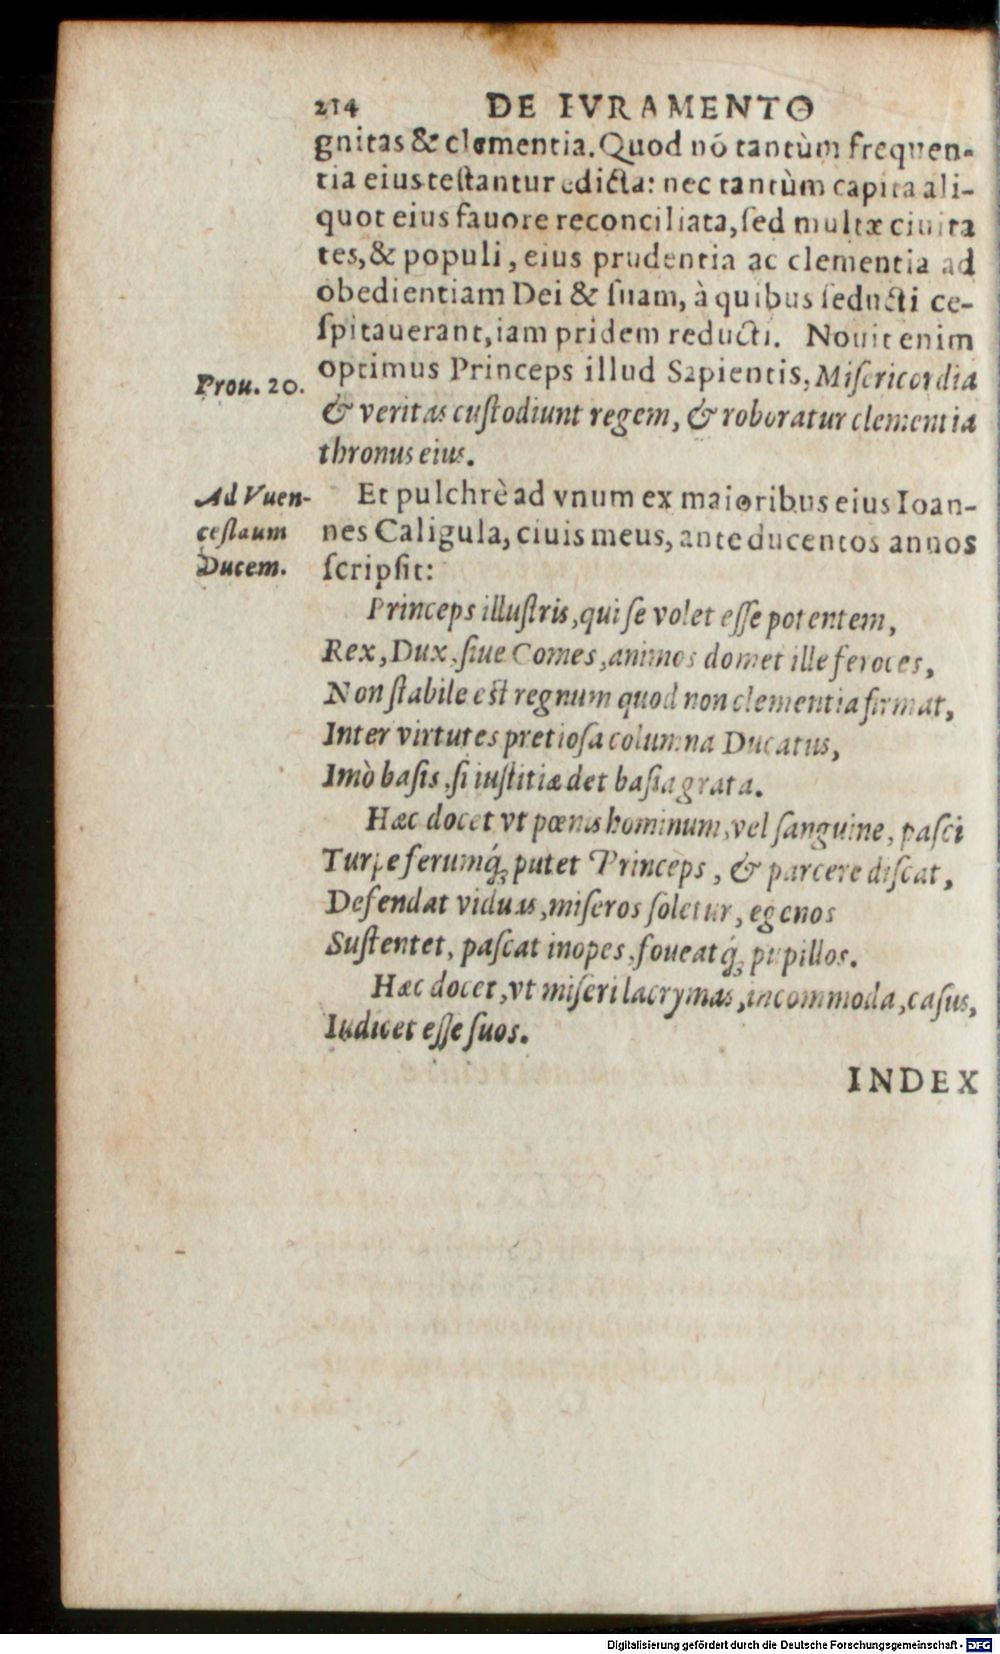 214 DE IVRAMENTO
gnitas & clementia. Quod nó tantùm frequen-
tia eius testantur edicta: nec tantùm capita ali-
quot eius fauore reconciliata, sed multæ ciuita
tes, & populi, eius prudentia ac clementia ad
obedientiam Dei & suam, à quibus seducti ce-
spitauerant, iam pridem reducti. Nouit enim
Prou. 20. optimus Princeps illud Sapientis, Misericordia
& veritas custodiunt regem, & roboratur clementia
thronus eius.
Ad Vuen- Et pulchrè ad vnum ex maioribus eius Ioan-
ceslaum nes Caligula, ciuis meus, ante ducentos annos
Ducem. scripsit:
Princeps illustris, qui se volet esse potentem,
Rex, Dux, siue Comes, animos domet ille feroces,
Non stabile est regnum quod non clementia firmat,
Inter virtutes pretiosa columna Ducatus,
Imò basis, si iustitiæ det basia grata.
Hæc docet vt pœnis hominum, vel sanguine, pasci
Turpe ferumq́; putet Princeps, & parcere discat,
Defendat viduas, miseros soletur, egenos
Sustentet, pascat inopes, foueatq́; pupillos.
Hæc docet, vt miseri lacrymas, incommoda, casus,
Iudicet esse suos.
INDEX
Digitalisierung gefördert durch die Deutsche Forschungsgemeinschaft - DFG